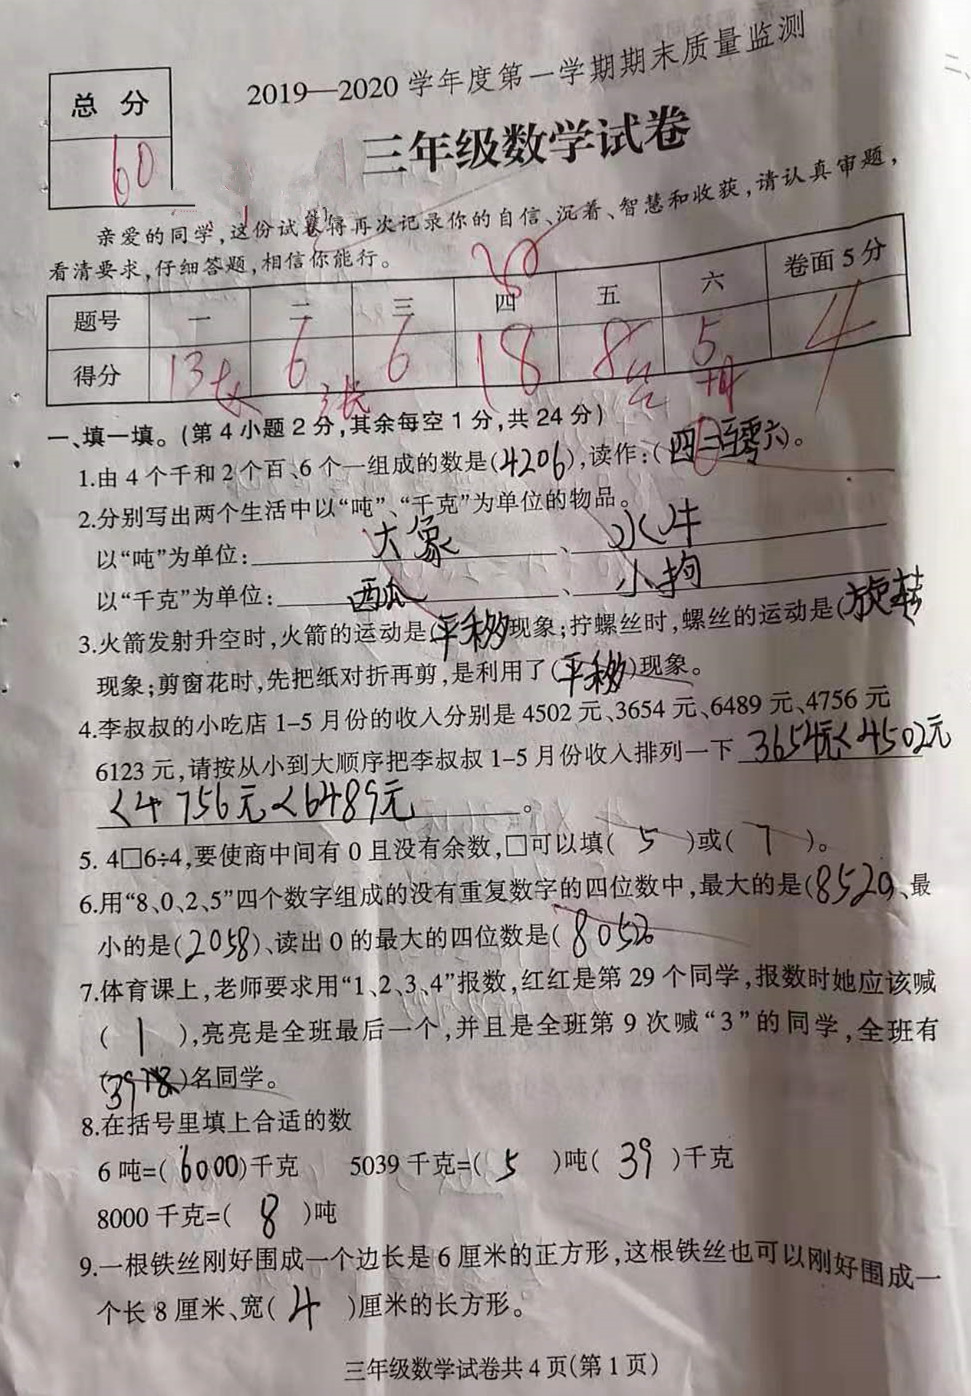 2019—2020 学年度第一学期期末质量监测
三年级数学试卷
总 分
60
亲爱的同学,这份试卷将再次记录你的自信、沉着、智慧和收获,请认真审题,
看清要求,仔细答题,相信你能行。
题号 一 二 三 四 五 六 卷面 5 分
得分 13 6 6 18 8 5 4
一、填一填。(第 4 小题 2 分,其余每空 1 分,共 24 分)
1.由 4 个千和 2 个百、6 个一组成的数是(4206),读作:(四 百零六)。
2.分别写出两个生活中以“吨”、“千克”为单位的物品。
以“吨”为单位: 大象 、 水牛
以“千克”为单位: 西瓜 、 小狗
3.火箭发射升空时,火箭的运动是(平移)现象;拧螺丝时,螺丝的运动是(旋转
现象;剪窗花时,先把纸对折再剪,是利用了(平移)现象。
4.李叔叔的小吃店 1-5 月份的收入分别是 4502 元、3654 元、6489 元、4756 元
6123 元,请按从小到大顺序把李叔叔 1-5 月份收入排列一下 3654元<4502元
<4756元<6489元 。
5. 4□6÷4,要使商中间有 0 且没有余数,□可以填( 5 )或( 7 )。
6.用“8、0、2、5”四个数字组成的没有重复数字的四位数中,最大的是(8520)、最
小的是(2058)、读出 0 的最大的四位数是( 8052
7.体育课上,老师要求用“1、2、3、4”报数,红红是第 29 个同学,报数时她应该喊
( 1 ),亮亮是全班最后一个,并且是全班第 9 次喊“3”的同学,全班有
(39 )名同学。
8.在括号里填上合适的数
6 吨=(6000)千克 5039 千克=( 5 )吨( 39 )千克
8000 千克=( 8 )吨
9.一根铁丝刚好围成一个边长是 6 厘米的正方形,这根铁丝也可以刚好围成一
个长 8 厘米、宽( 4 )厘米的长方形。
三年级数学试卷共 4 页(第 1 页)
二、